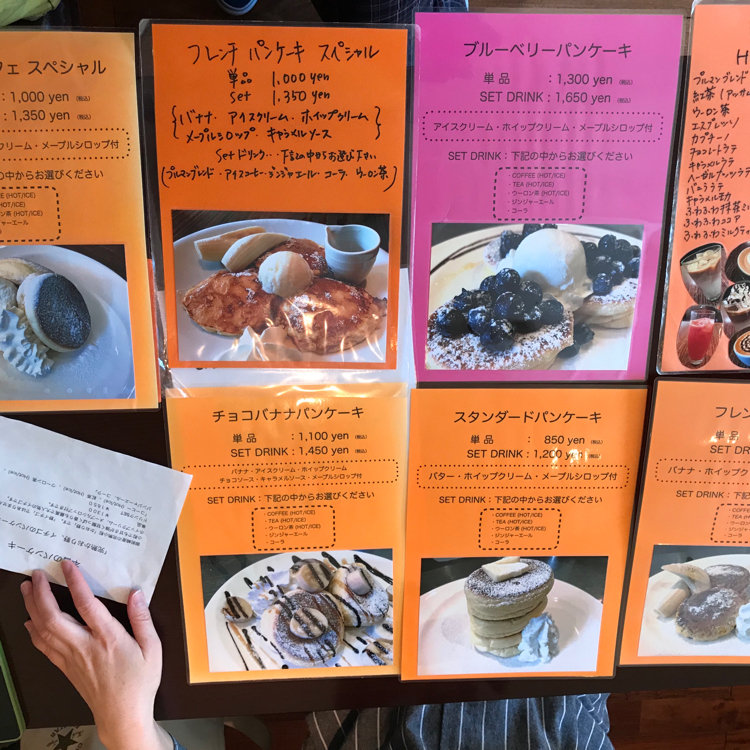 フェ スペシャル
: 1,000 yen (税込)
: 1,350 yen (税込)
クリーム・メープルシロップ付
の中からお選びください
(HOT/ICE)
(HOT/ICE)
ン茶 (HOT/ICE)
ャーエール
フレンチ パンケーキ スペシャル
単品 1,000 yen
Set 1,350 yen
{バナナ・アイスクリーム・ホイップクリーム
メープルシロップ キャラメルソース}
Setドリンク・・・下記の中からお選び下さい
(ブルマンブレンド・アイスコーヒー・ジンジャエール・コーラ・ウーロン茶)
ブルーベリーパンケーキ
単 品 : 1,300 yen (税込)
SET DRINK : 1,650 yen (税込)
アイスクリーム・ホイップクリーム・メープルシロップ付
SET DRINK : 下記の中からお選びください
・COFFEE (HOT/ICE)
・TEA (HOT/ICE)
・ウーロン茶 (HOT/ICE)
・ジンジャーエール
・コーラ
H
ブルマンブレンド
紅茶 (アッサム
ウーロン茶
エスプレッソ
カプチーノ
チョコレートラテ
キャラメルラテ
ヘーゼルナッツラテ
バニララテ
キャラメルモカ
ふわふわ抹茶ミ
ふわふわココア
ふわふわミルクティ
チョコバナナパンケーキ
単 品 : 1,100 yen (税込)
SET DRINK : 1,450 yen (税込)
バナナ・アイスクリーム・ホイップクリーム
チョコソース・キャラメルソース・メープルシロップ付
SET DRINK : 下記の中からお選びください
・COFFEE (HOT/ICE)
・TEA (HOT/ICE)
・ウーロン茶 (HOT/ICE)
・ジンジャーエール
・コーラ
スタンダードパンケーキ
単 品 : 850 yen (税込)
SET DRINK : 1,200 yen (税込)
バター・ホイップクリーム・メープルシロップ付
SET DRINK : 下記の中からお選びください
・COFFEE (HOT/ICE)
・TEA (HOT/ICE)
・ウーロン茶 (HOT/ICE)
・ジンジャーエール
・コーラ
フレン
単 品
SET DRINK
バナナ・ホイップク
SET DRINK : 下記
・COFFEE
・TEA (H
・ウーロン
・ジンジ
・コーラ